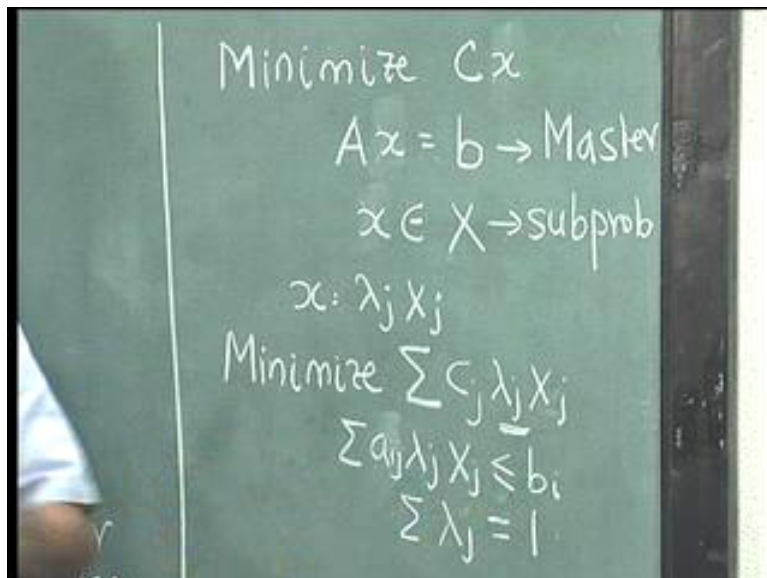 Minimize Cx
Ax = b → Master
x ∈ X → subprob
x = λj Xj
Minimize ∑ Cj λj Xj
∑ aij λj Xj ≤ bi
∑ λj = 1
r